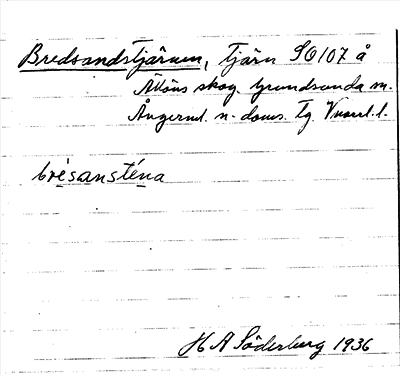 Bredsandstjärnen, tjärn SO107 å
Attåns skog Grundsunda sn.
Ångerml. n. doms. Tg. Vnorrl. l.
brésansténa
H A Söderberg 1936